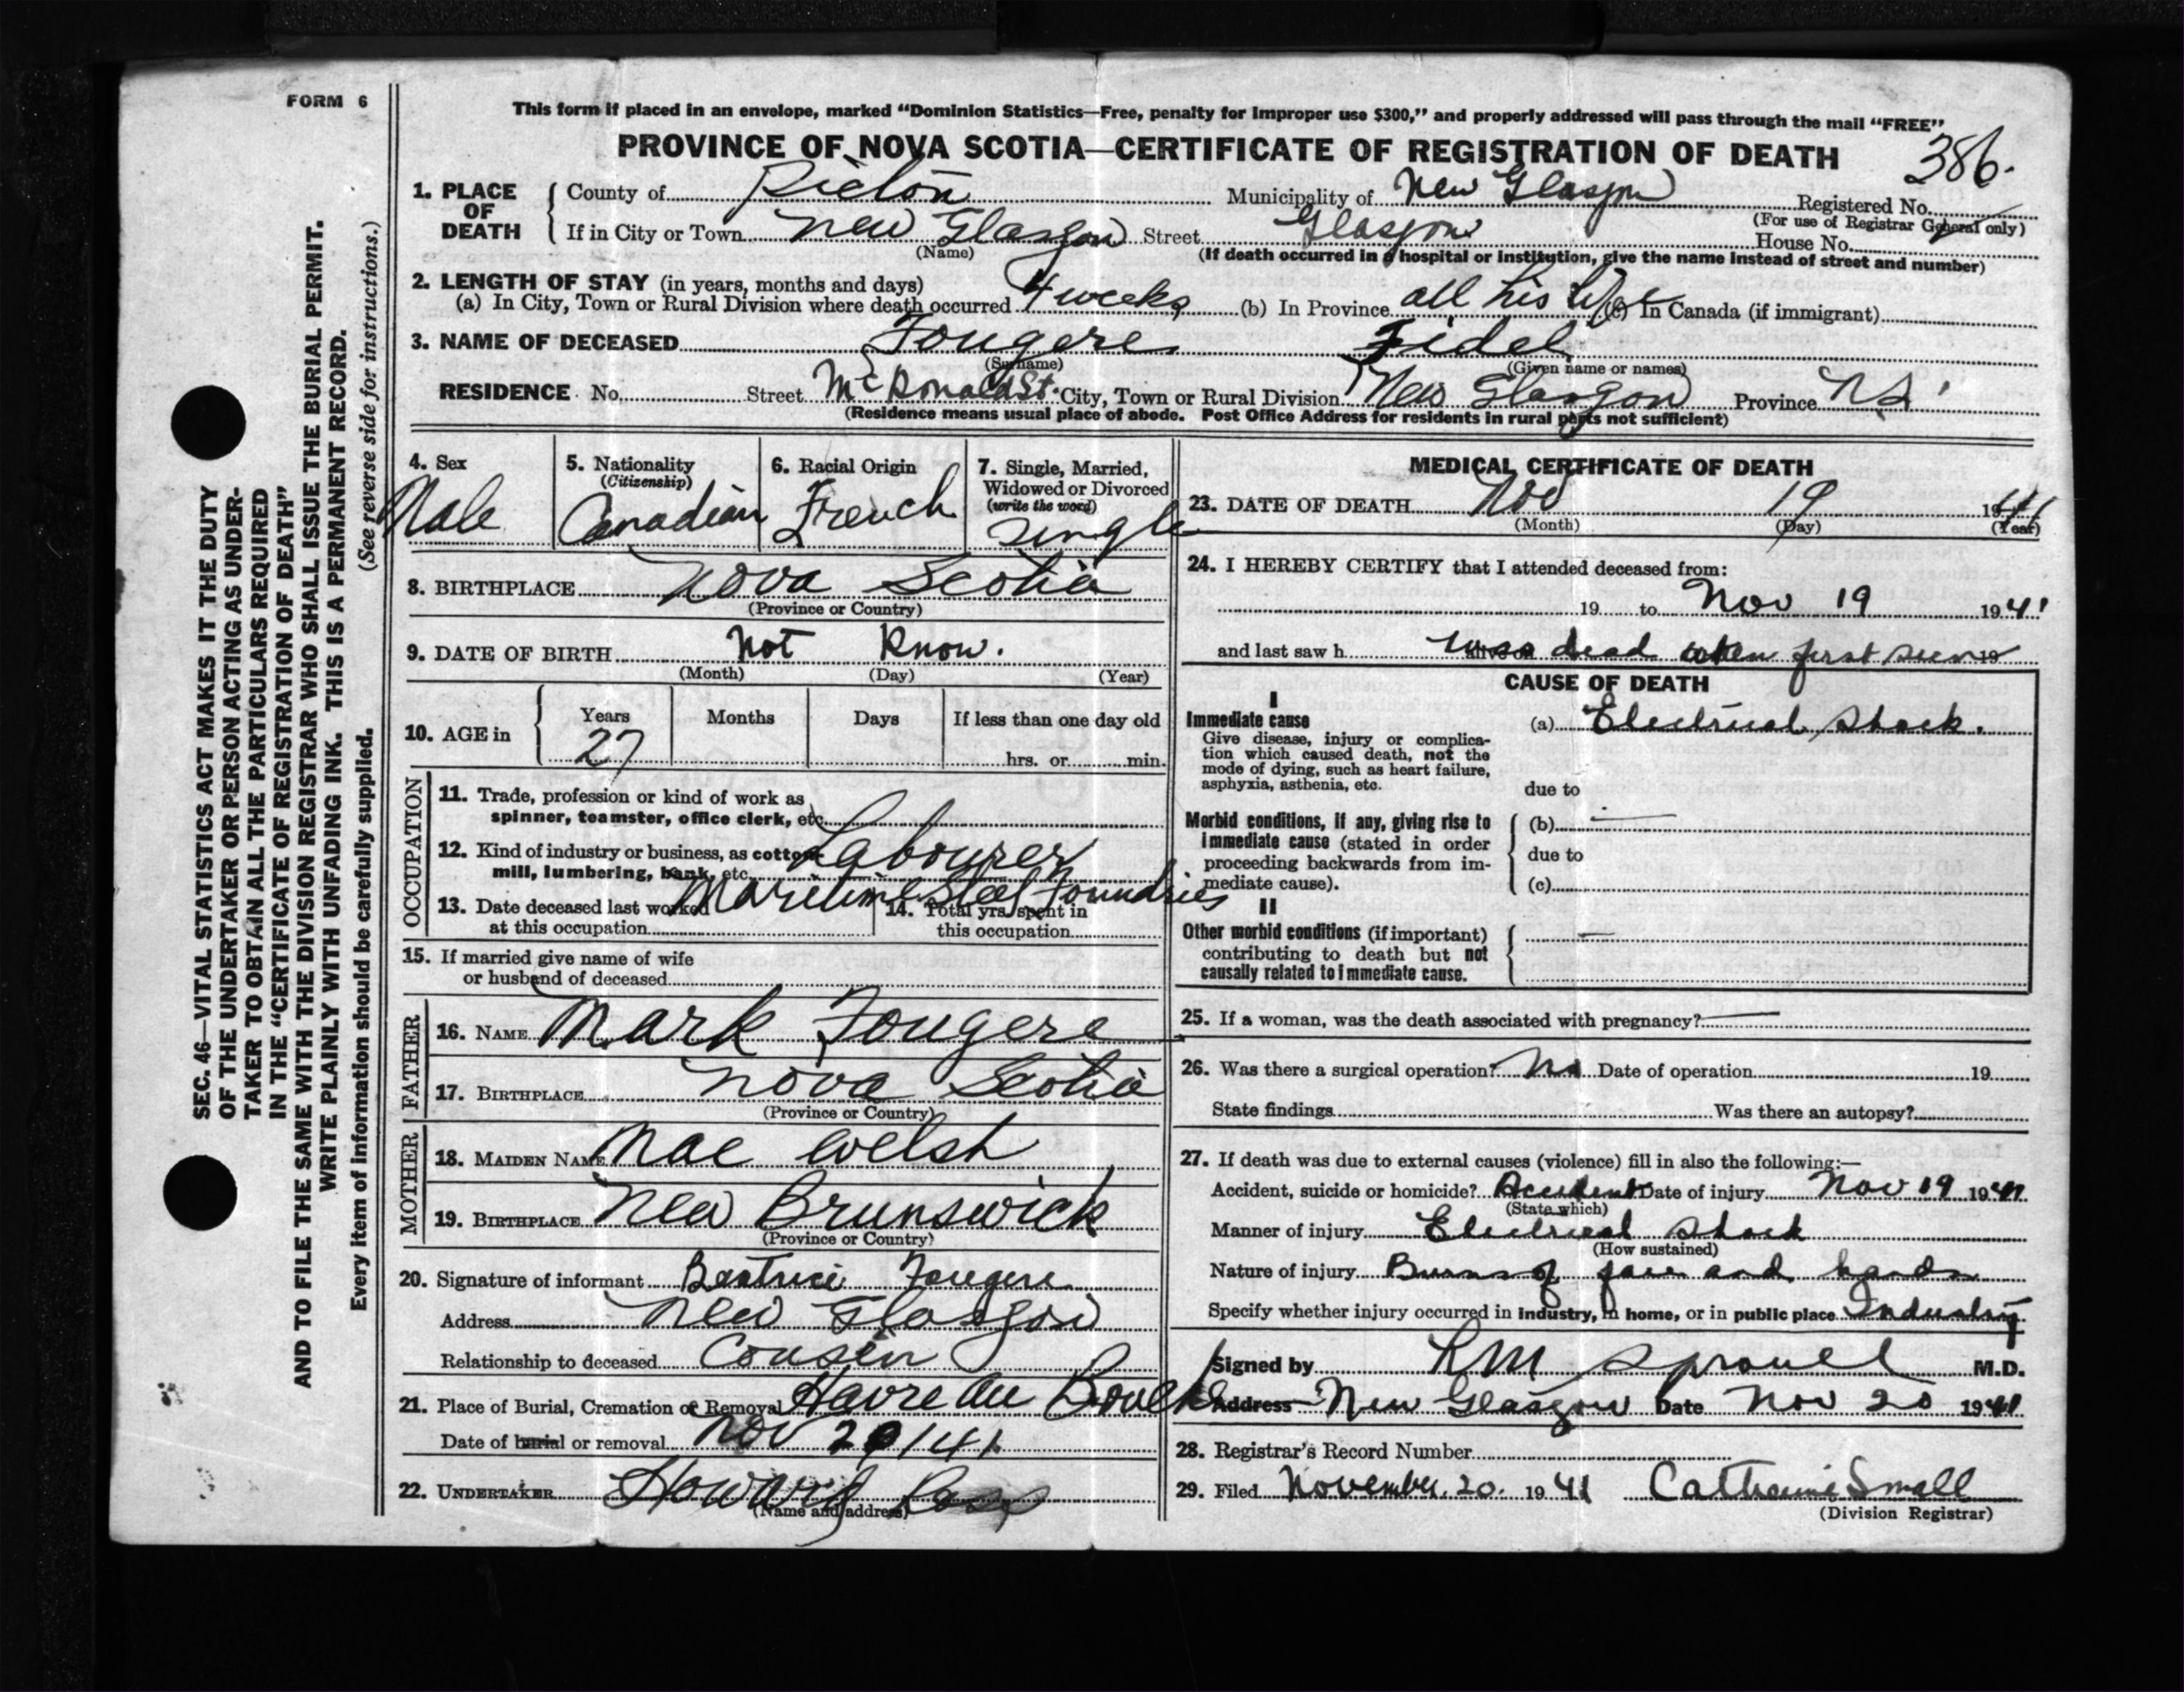 FORM 6
This form if placed in an envelope, marked “Dominion Statistics—Free, penalty for improper use $300,” and properly addressed will pass through the mail “FREE”
PROVINCE OF NOVA SCOTIA—CERTIFICATE OF REGISTRATION OF DEATH
386.
1. PLACE OF DEATH
County of Pictou Municipality of New Glasgow Registered No.
(For use of Registrar General only)
If in City or Town New Glasgow Street Glasgow House No.
(Name) (If death occurred in a hospital or institution, give the name instead of street and number)
2. LENGTH OF STAY (in years, months and days)
(a) In City, Town or Rural Division where death occurred 4 weeks (b) In Province all his life (c) In Canada (if immigrant)
3. NAME OF DECEASED Fougere Fidel
(Surname) (Given name or names)
RESIDENCE No. Street McDonald St. City, Town or Rural Division New Glasgow Province N.S.
(Residence means usual place of abode. Post Office Address for residents in rural parts not sufficient)
4. Sex
Male
5. Nationality
(Citizenship)
Canadian
6. Racial Origin
French
7. Single, Married,
Widowed or Divorced
(write the word)
Single
8. BIRTHPLACE Nova Scotia
(Province or Country)
9. DATE OF BIRTH Not Know.
(Month) (Day) (Year)
10. AGE in
Years Months Days If less than one day old
27 hrs. or min.
OCCUPATION
11. Trade, profession or kind of work as
spinner, teamster, office clerk, etc.
Labourer
12. Kind of industry or business, as cotton
mill, lumbering, bank, etc.
Maritime Steel Foundries
13. Date deceased last worked
at this occupation
14. Total yrs. spent in
this occupation
15. If married give name of wife
or husband of deceased
FATHER
16. NAME Mark Fougere
17. BIRTHPLACE Nova Scotia
(Province or Country)
MOTHER
18. MAIDEN NAME Mae Welsh
19. BIRTHPLACE New Brunswick
(Province or Country)
20. Signature of informant Beatrice Fougere
Address New Glasgow
Relationship to deceased Cousin
21. Place of Burial, Cremation or Removal Havre au Bouche
Date of burial or removal Nov 20/41.
22. UNDERTAKER Howard Ross
(Name and address)
MEDICAL CERTIFICATE OF DEATH
23. DATE OF DEATH Nov 19 1941
(Month) (Day) (Year)
24. I HEREBY CERTIFY that I attended deceased from:
19 to Nov 19 1941
and last saw h alive on was dead when first seen 19
CAUSE OF DEATH
I
Immediate cause
Give disease, injury or complica-
tion which caused death, not the
mode of dying, such as heart failure,
asphyxia, asthenia, etc.
(a) Electrical shock.
due to
Morbid conditions, if any, giving rise to
immediate cause (stated in order
proceeding backwards from im-
mediate cause).
(b) —
due to
(c)
II
Other morbid conditions (if important)
contributing to death but not
causally related to immediate cause.
—
25. If a woman, was the death associated with pregnancy? —
26. Was there a surgical operation? No Date of operation 19
State findings Was there an autopsy?
27. If death was due to external causes (violence) fill in also the following:—
Accident, suicide or homicide? Accident Date of injury Nov 19 1941
(State which)
Manner of injury Electrical shock
(How sustained)
Nature of injury Burns of face and hands
Specify whether injury occurred in industry, in home, or in public place Industry
Signed by R M Sproull M.D.
Address New Glasgow Date Nov 20 1941
28. Registrar's Record Number
29. Filed November. 20. 1941 Catherine Small
(Division Registrar)
SEC. 46—VITAL STATISTICS ACT MAKES IT THE DUTY
OF THE UNDERTAKER OR PERSON ACTING AS UNDER-
TAKER TO OBTAIN ALL THE PARTICULARS REQUIRED
IN THE “CERTIFICATE OF REGISTRATION OF DEATH”
AND TO FILE THE SAME WITH THE DIVISION REGISTRAR WHO SHALL ISSUE THE BURIAL PERMIT.
WRITE PLAINLY WITH UNFADING INK. THIS IS A PERMANENT RECORD.
Every item of information should be carefully supplied. (See reverse side for instructions.)